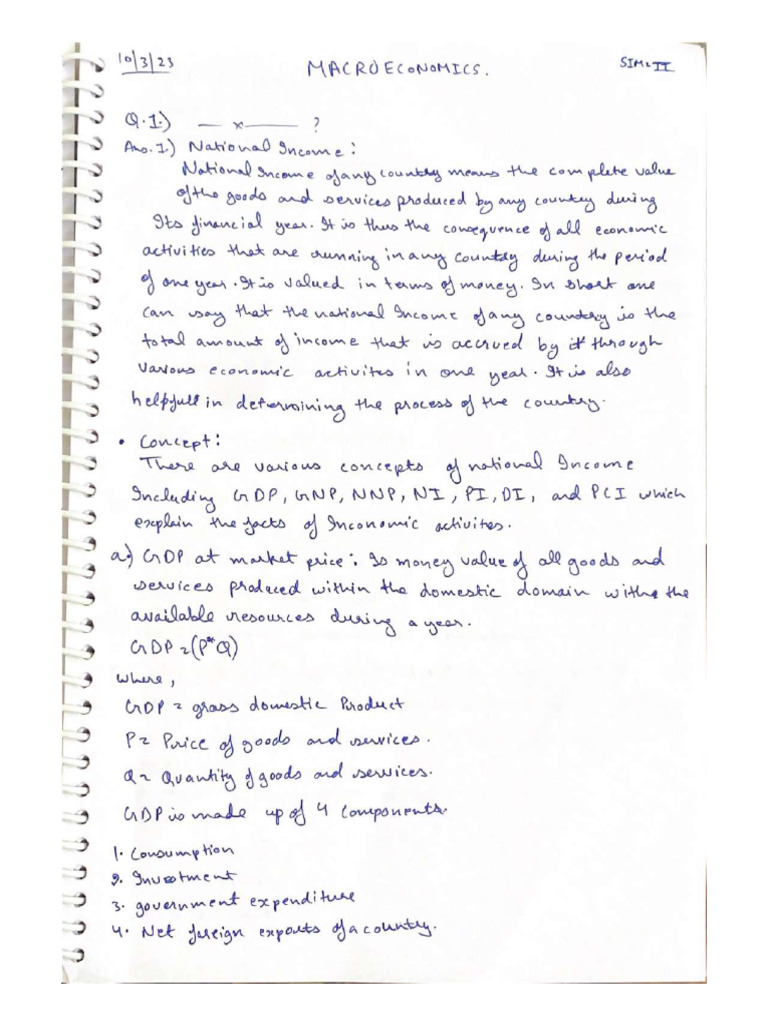 10/3/23 MACROECONOMICS. SIM-II
Q.1.) — x —— ?
Ans.1.) National Income:
National Income of any country means the complete value
of the goods and services produced by any country during
Its financial year. It is thus the consequence of all economic
activities that are running in any country during the period
of one year. It is valued in terms of money. In short one
can say that the national Income of any country is the
total amount of income that is accrued by it through
various economic activites in one year. It is also
helpfull in determining the process of the country.
• Concept:
There are various concepts of national Income
Including GDP, GNP, NNP, NI, PI, DI, and PCI which
explain the facts of Inconomic activites.
a.) GDP at market price: Is money value of all goods and
services produced within the domestic domain with the
available resources during a year.
GDP = (P*Q)
where,
GDP = grass domestic Product
P = Price of goods and services.
Q = Quantity of goods and services.
GDP is made up of 4 components.
1. Consumption
2. Investment
3. government expenditure
4. Net foreign exports of a country.